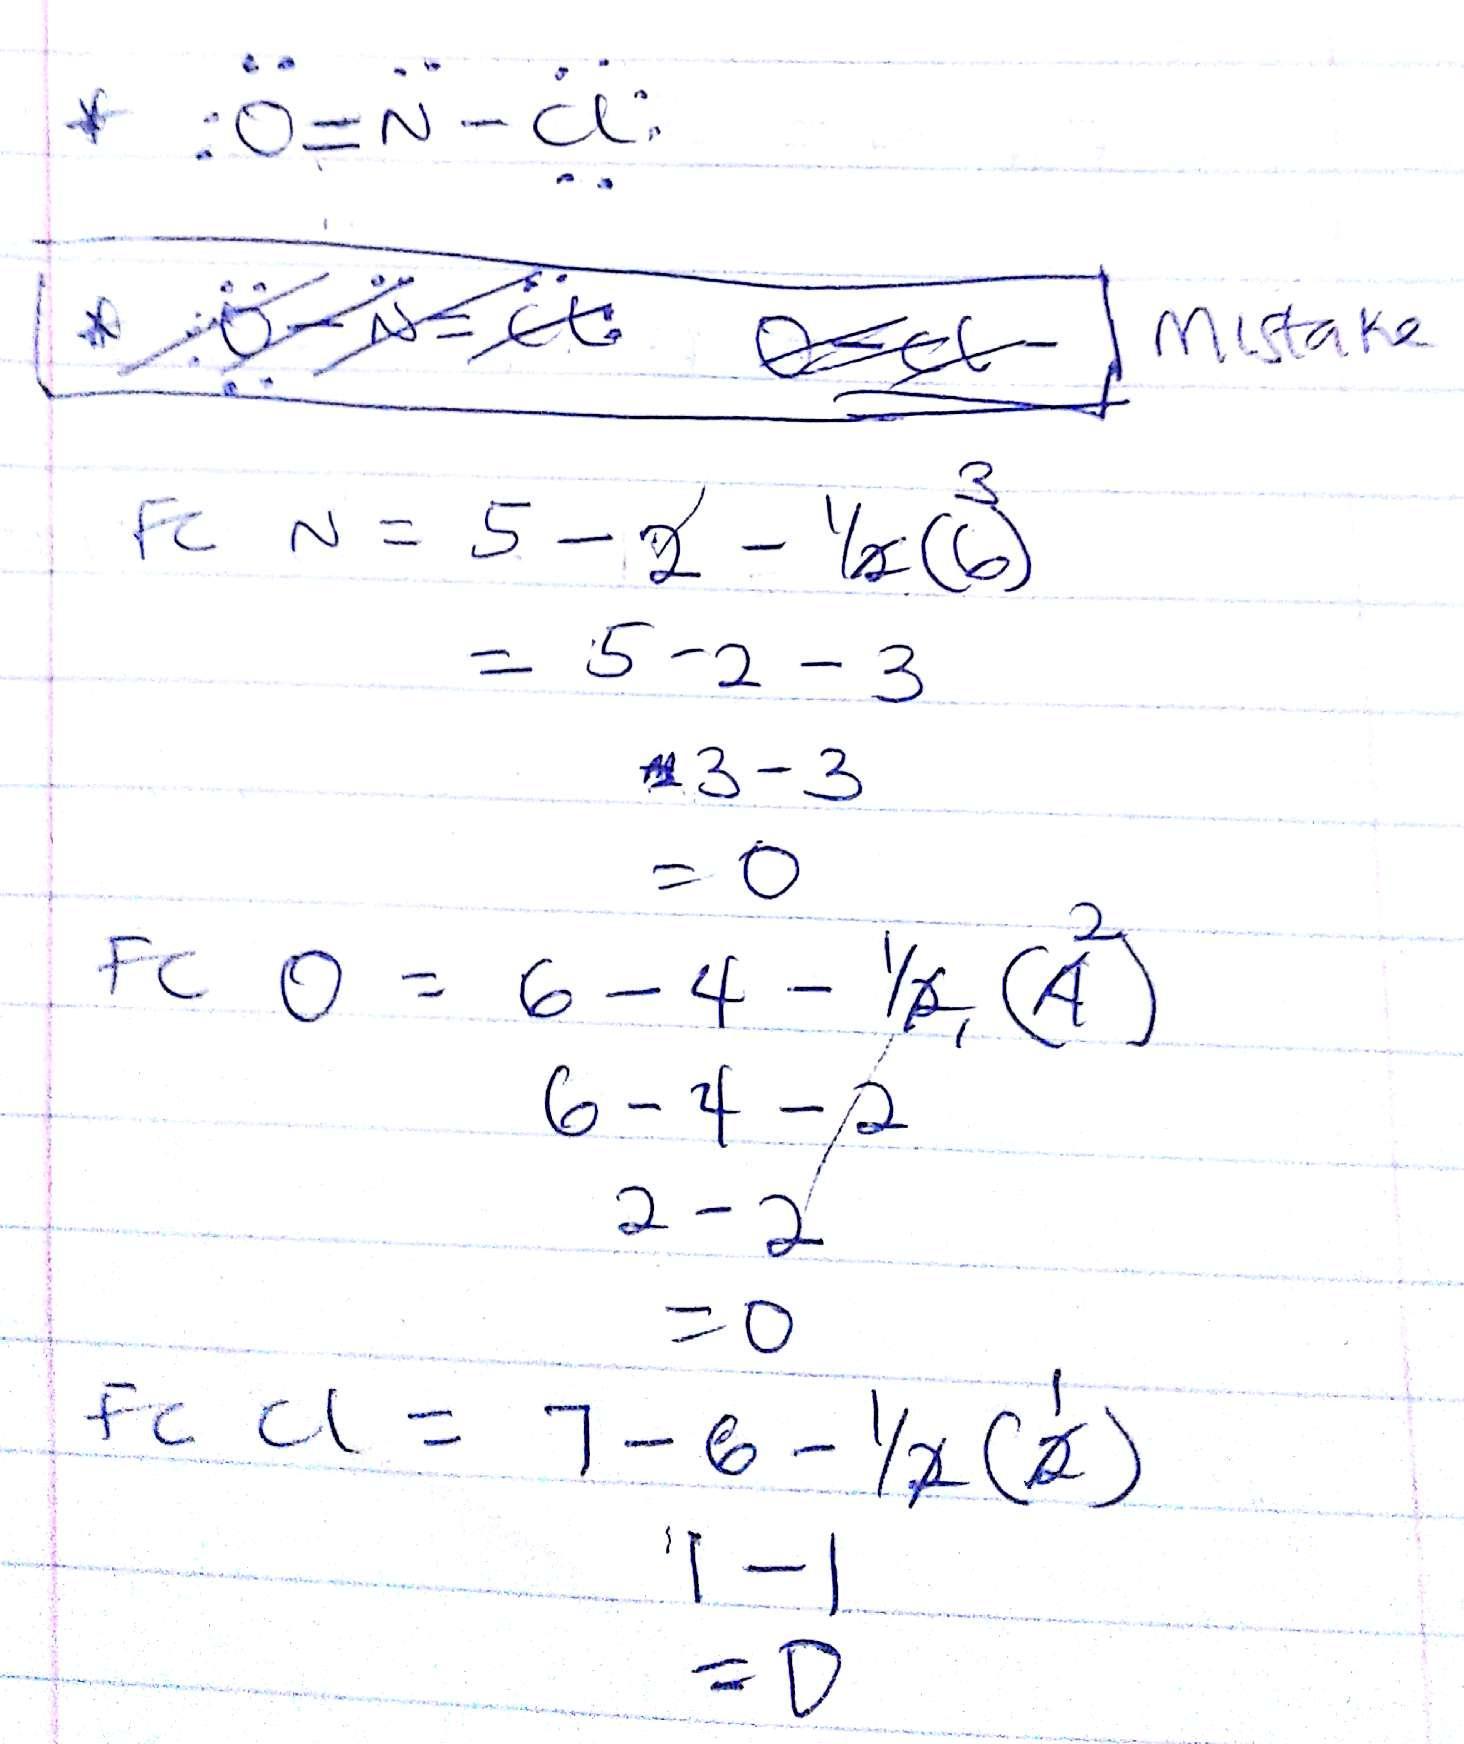 * :Ö=N̈-C̈l:
* :Ö-N̈=C̈l: O=Cl- Mistake
FC N = 5 - 2 - 1/2(6) 3
= 5-2-3
3-3
= 0
FC O = 6-4-1/2(4) 2
6-4-2
2-2
=0
FC Cl = 7-6-1/2(2) 1
1-1
=0